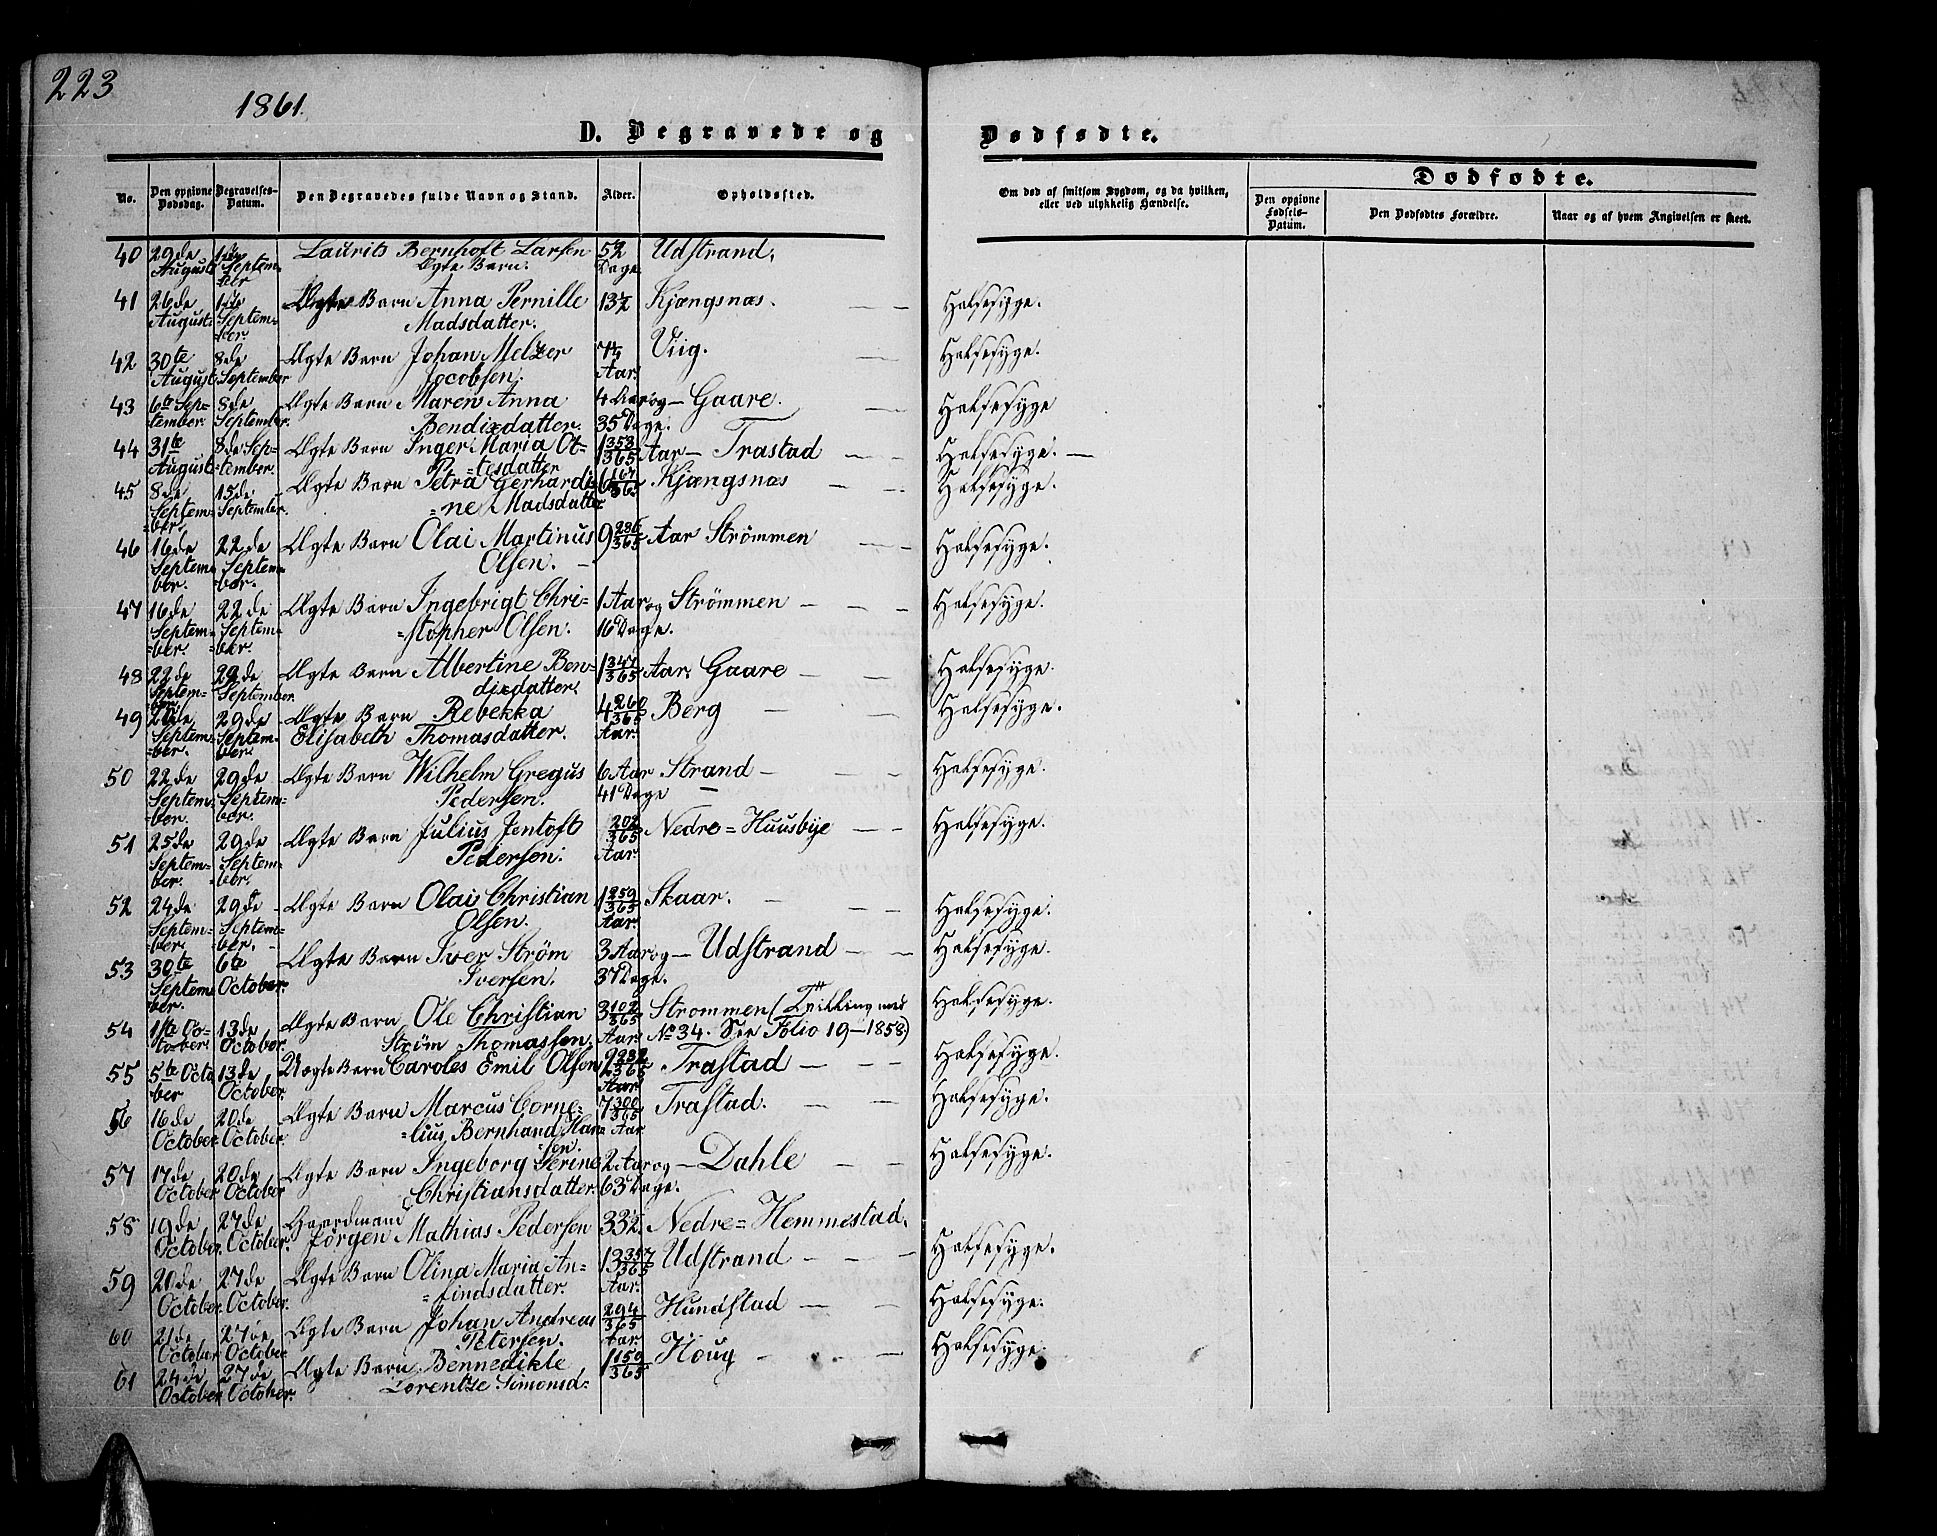 223
1861.
D. Begravede og Dødfødte.
No. Den opgivne Dødsdag. Begravelses-Datum. Den Begravedes fulde Navn og Stand. Alder. Opholdssted. Om død af smitsom Sygdom, og da hvilken, eller ved ulykkelig Hændelse. Dødfødte.
Den opgivne Fødsels-Datum. Den Dødfødtes Forældre. Naar og af hvem Angivelsen er skeet.
40 29de August 1ste September Laurits Bernhoft Larsen Ægte Barn. 52 Dage Udstrand.
41 26de August 1ste September Ægte Barn Anna Pernille Madsdatter. 13½ Kjængsnæs. Halsesyge.
42 30te August 8de September Ægte Barn Johan Melzer Jacobsen. Aar. Viig. Halsesyge.
43 6te September 8de September Ægte Barn Maren Anna Bendixdatter. 4 Aar og 35 Dage. Gaare. Halsesyge
44 31te August 8de September Ægte Barn Inger Maria Ot=tesdatter 1 353/365 Aar Trastad Halsesyge.
45 8de September 15de September Ægte Barn Petra Gerhardi=ne Madsdatter Kjængsnæs Halsesyge.
46 16de September 22de September Ægte Barn Olai Martinus Olsen. 9 286/365 Aar Strömmen Halsesyge.
47 16de September 22de September Ægte Barn Ingebrigt Chri=stopher Olsen. 1 Aar og 16 Dage. Strömmen Halsesyge.
48 22de September 29de September Ægte Barn Albertine Ben=dixdatter. 1 347/365 Aar. Gaare Halsesyge.
49 September 29de September Ægte Barn Rebekka Elisabeth Thomasdatter. 4 260/365 Aar. Berg Halsesyge.
50 22de September 29de September Ægte Barn Wilhelm Gregus Pedersen. 6 Aar 41 Dage Strand Halsesyge.
51 25de September 29de September Ægte Barn Julius Jentoft Pedersen. 202/365 Aar. Nedre=Huusbye Halsesyge.
52 24de September 29de September Ægte Barn Olai Christian Olsen. 1 259/365 Aar. Skaar. Halsesyge.
53 30te September 6te October. Ægte Barn Iver Ström Iversen. 3 Aar og 37 Dage. Udstrand Halsesyge.
54 1ste October. 13de October Ægte Barn Ole Christian Ström Thomassen. 3 102/365 Aar. Strommen (Tvilling med No 34. See Folio 19-1858) Halsesyge.
55 5te October 13de October. Uægte Barn Caroles Emil Olsen 2 232/365 Aar Trastad Halsesyge.
56 16de October. 20de October. Ægte Barn Marcus Corne=lius Bernhard Han=sen. 7 300/365 Aar Trastad. Halsesyge.
57 17de October 20de October Ægte Barn Ingeborg Serine Christiansdatter. 2 Aar og 63 Dage. Dahle Halsesyge.
58 19de October. 27de October. Gaardmand Jörgen Mathias Pedersen 33½. Nedre=Hemmestad.
59 20de October. 27de October. Ægte Barn Olina Maria An=findsdatter. 13 357/365 Aar. Udstrand Halsesyge.
60 21de October 27de October. Ægte Barn Johan Andreas Petersen. 294/365 Aar. Hundstad Halsesyge.
61 24de October 27de October. Ægte Barn Bennedikte Lorentze Simonsd= 1 159/365 Houg Halsesyge.